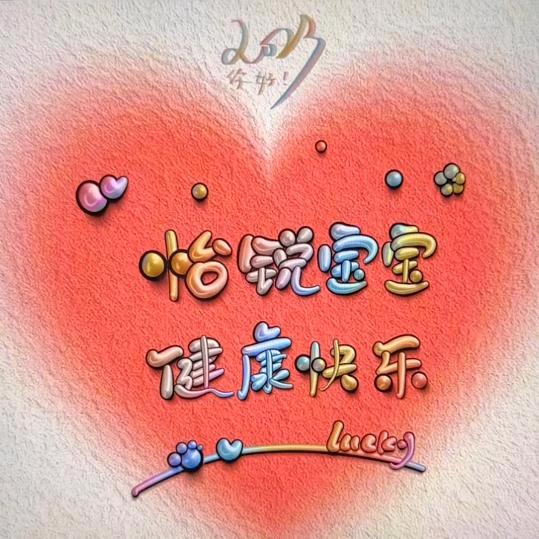 2023
你好!
怡锐宝宝
健康快乐
lucky